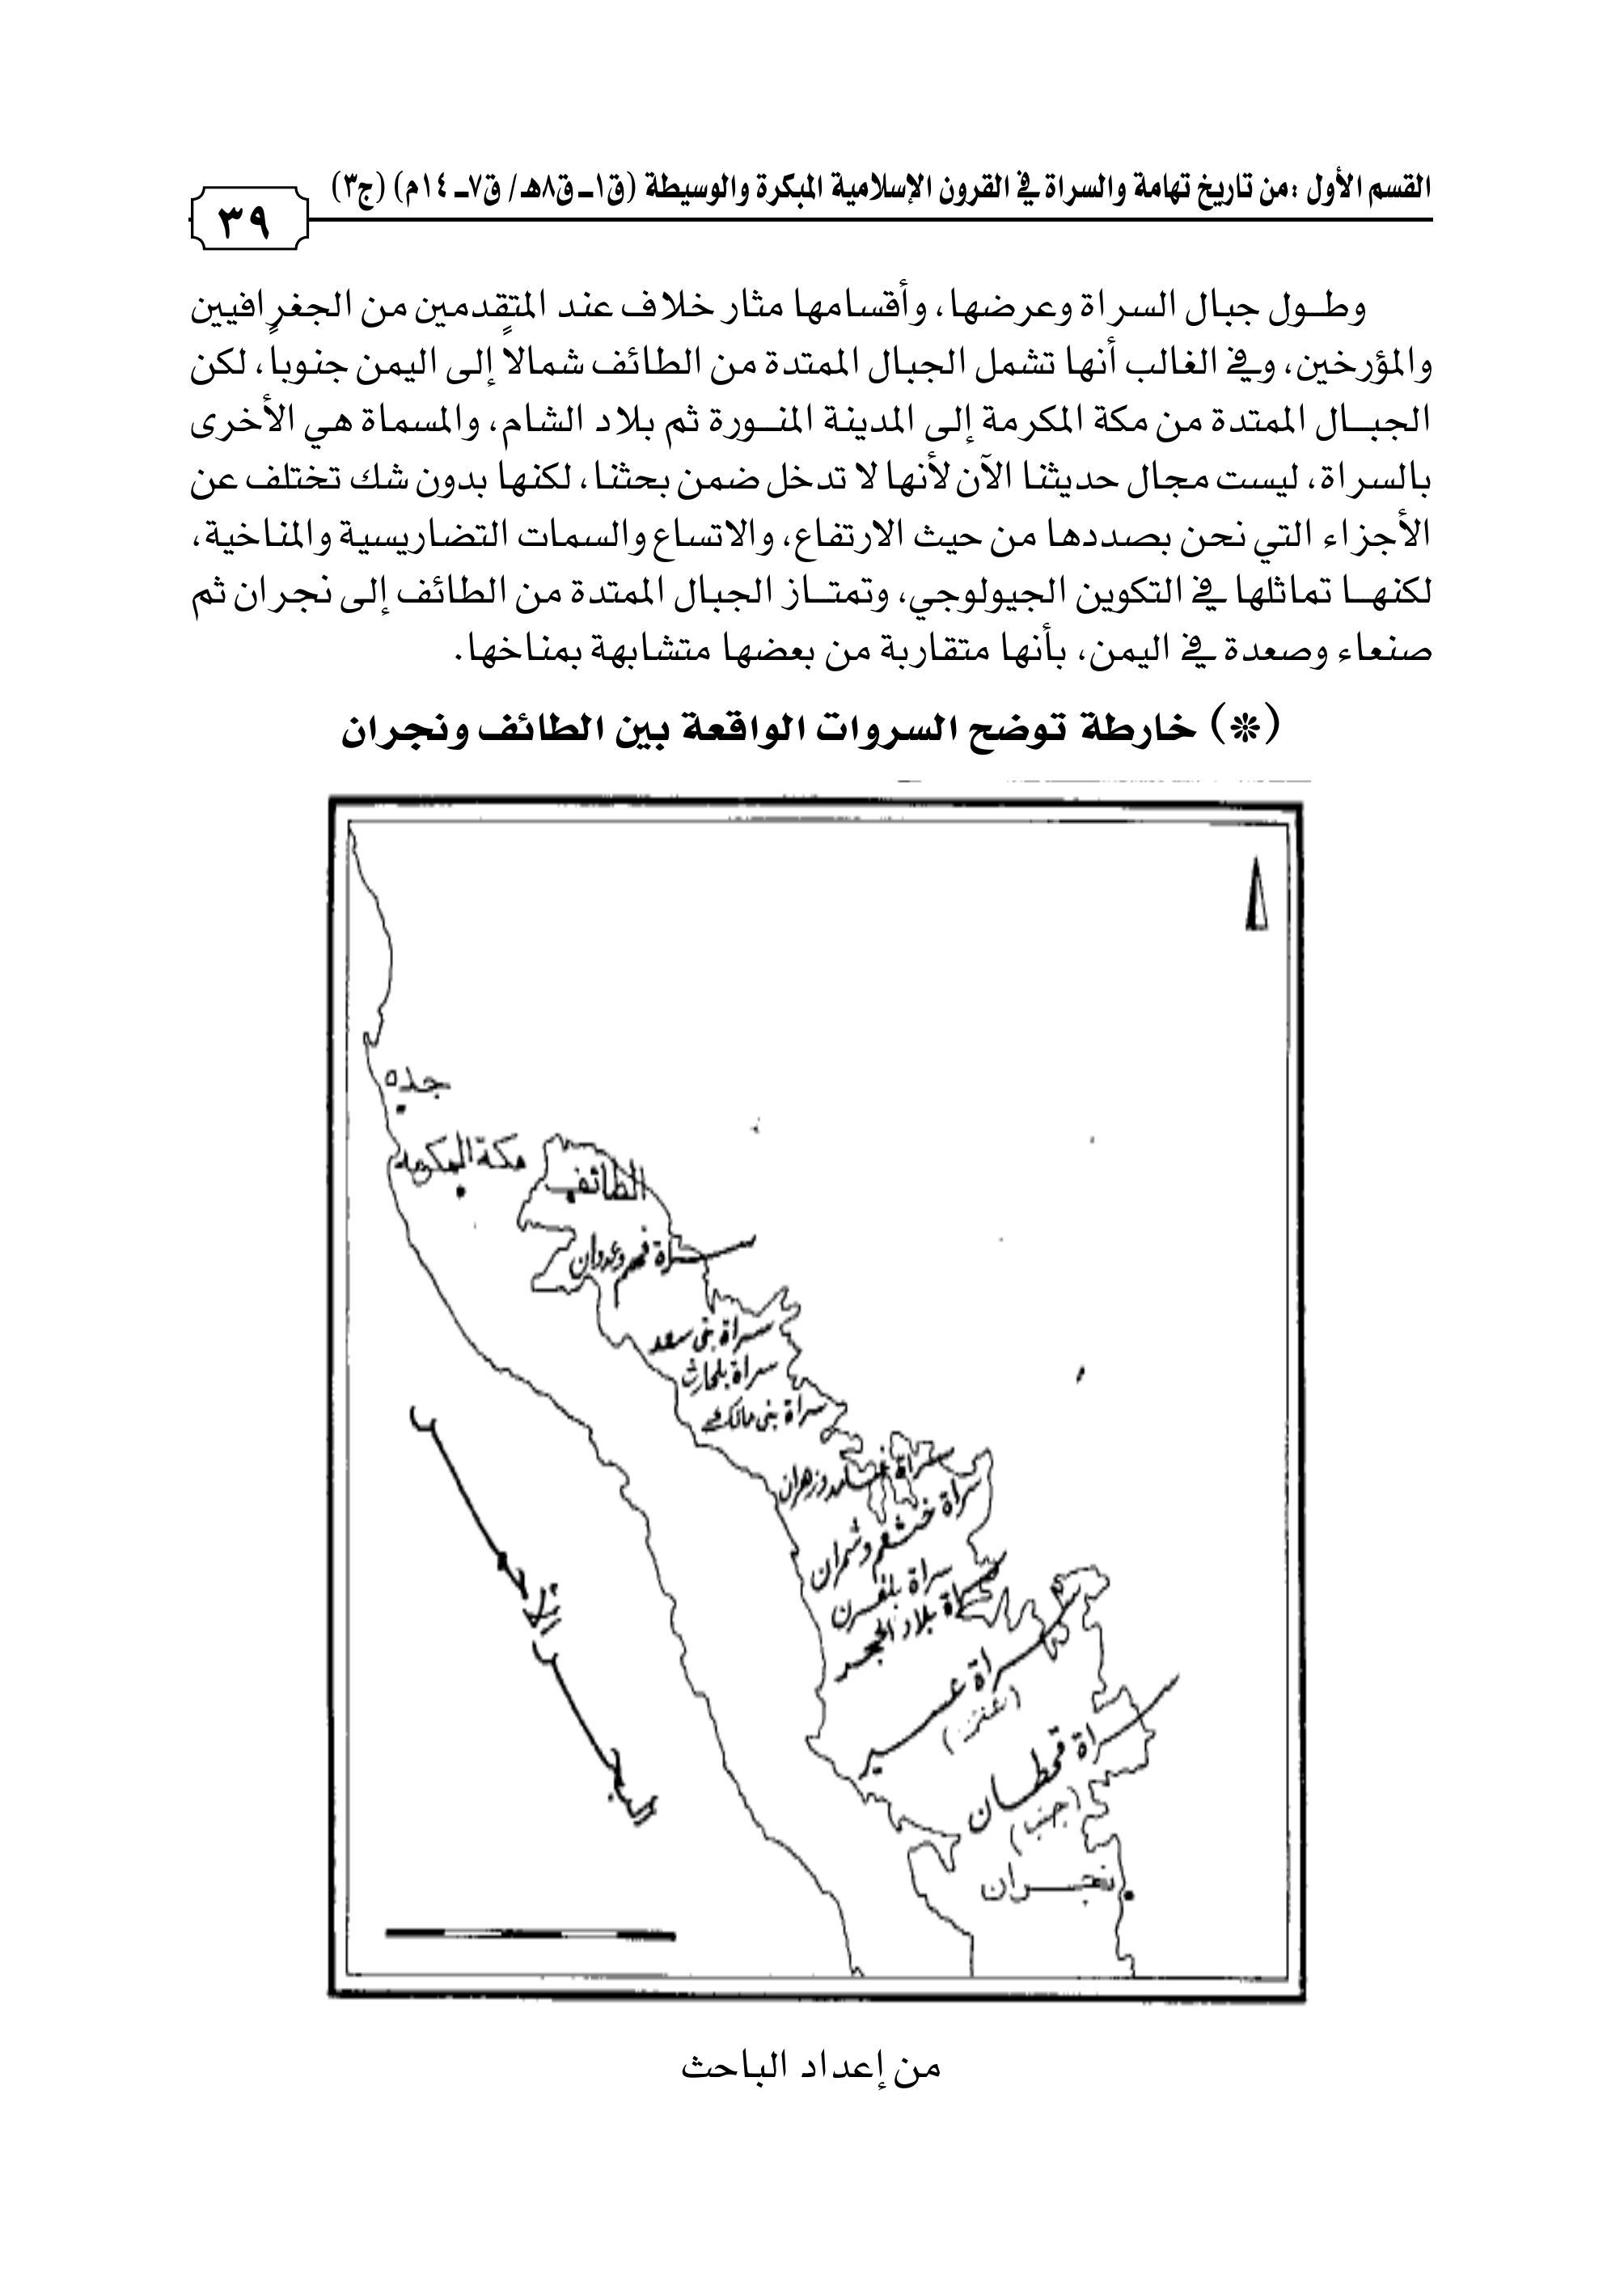 القسم الأول :من تاريخ تهامة والسراة في القرون الإسلامية المبكرة والوسيطة (ق١ـ ق٨هـ/ ق٧ـ ١٤م) (ج٣)
٣٩
وطول جبال السراة وعرضها، وأقسامها مثار خلاف عند المتقدمين من الجغرافيين
والمؤرخين، وفي الغالب أنها تشمل الجبال الممتدة من الطائف شمالاً إلى اليمن جنوباً، لكن
الجبال الممتدة من مكة المكرمة إلى المدينة المنورة ثم بلاد الشام، والمسماة هي الأخرى
بالسراة، ليست مجال حديثنا الآن لأنها لا تدخل ضمن بحثنا، لكنها بدون شك تختلف عن
الأجزاء التي نحن بصددها من حيث الارتفاع، والاتساع والسمات التضاريسية والمناخية،
لكنها تماثلها في التكوين الجيولوجي، وتمتاز الجبال الممتدة من الطائف إلى نجران ثم
صنعاء وصعدة في اليمن، بأنها متقاربة من بعضها متشابهة بمناخها.
(*) خارطة توضح السروات الواقعة بين الطائف ونجران
جده
مكة المكرمه
الطائف
سراة فهم وعدوان
سراة بني سعد
سراة بلحارث
سراة بني مالك
سراة غامد وزهران
سراة خثعم وشمران
سراة بلقرن
سراة بلاد الحجر
سراة عسير
(عنز)
سراة قحطان
(جنب)
نجران
البحر الأحمر
من إعداد الباحث